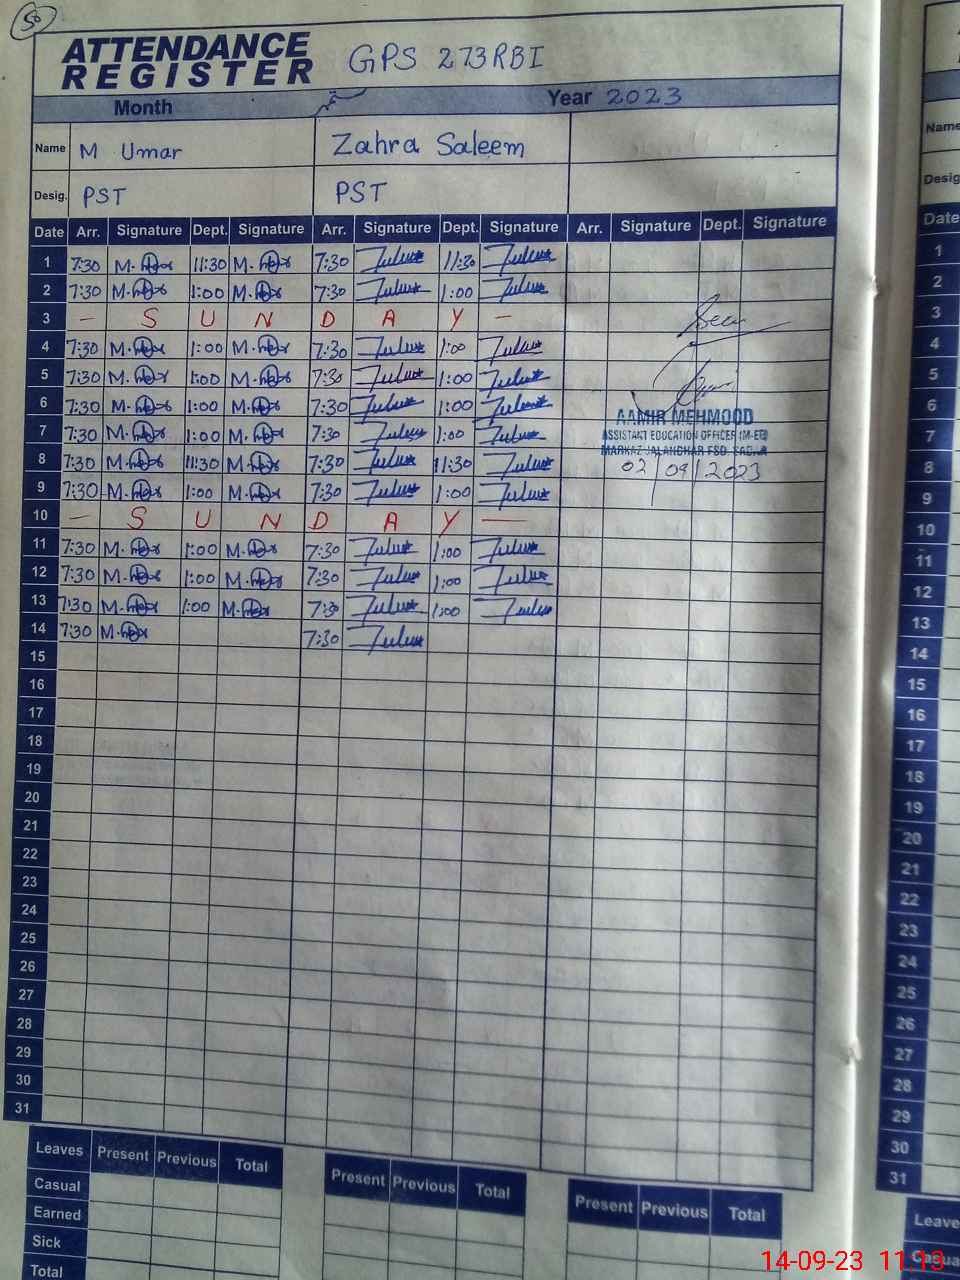 50
ATTENDANCE
REGISTER
GPS 273RBI
Month Year 2023
Name M Umar Zahra Saleem
Desig. PST PST
Date Arr. Signature Dept. Signature Arr. Signature Dept. Signature Arr. Signature Dept. Signature
1 7:30 11:30 7:30 11:30
2 7:30 1:00 7:30 1:00
3 - S U N D A Y -
4 7:30 1:00 7:30 1:00
5 7:30 1:00 7:30 1:00
6 7:30 1:00 7:30 1:00
AAMIR MEHMOOD
7 7:30 1:00 7:30 1:00
ASSISTANT EDUCATION OFFICER (M-EE)
MARKAZ JALANDHAR FSD.
8 7:30 11:30 7:30 11:30
02/09/2023
9 7:30 1:00 7:30 1:00
10 - S U N D A Y -
11 7:30 1:00 7:30 1:00
12 7:30 1:00 7:30 1:00
13 7:30 1:00 7:30 1:00
14 7:30 7:30
15
16
17
18
19
20
21
22
23
24
25
26
27
28
29
30
31
Leaves Present Previous Total Present Previous Total Present Previous Total
Casual
Earned
Sick
Total
Name
Desig
Date
1
2
3
4
5
6
7
8
9
10
11
12
13
14
15
16
17
18
19
20
21
22
23
24
25
26
27
28
29
30
31
Leave
Casua
14-09-23 11:13